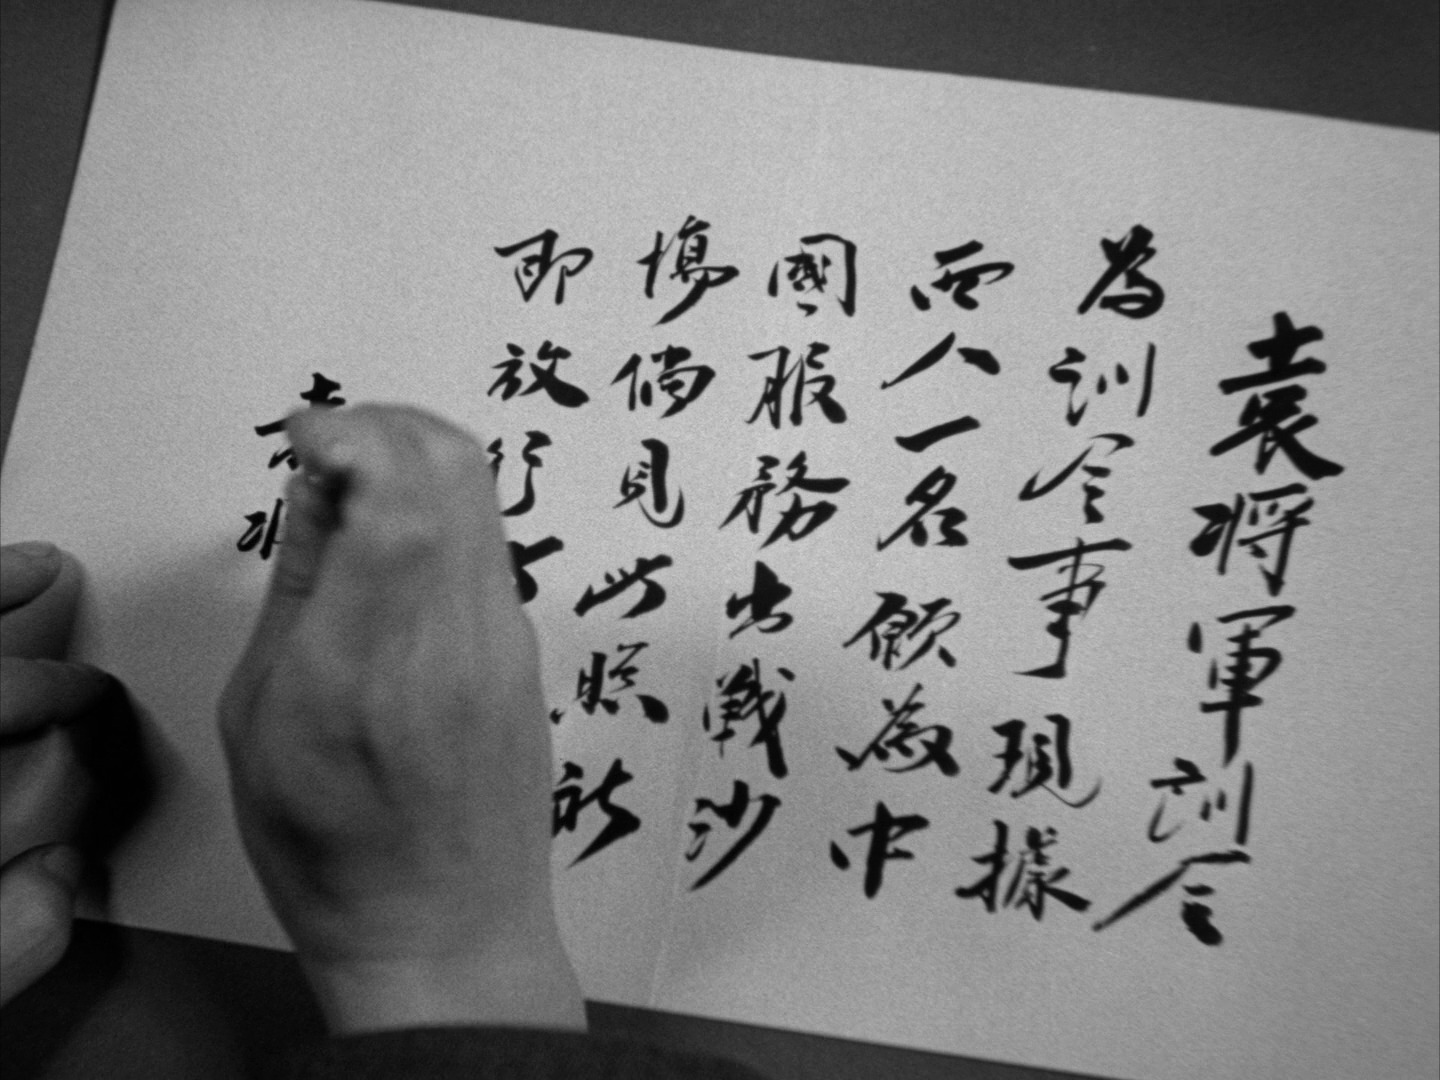 袁將軍訓令
為訓令事現據
西人一名願為中
國服務出戰沙
場倘見此照祈
即放行